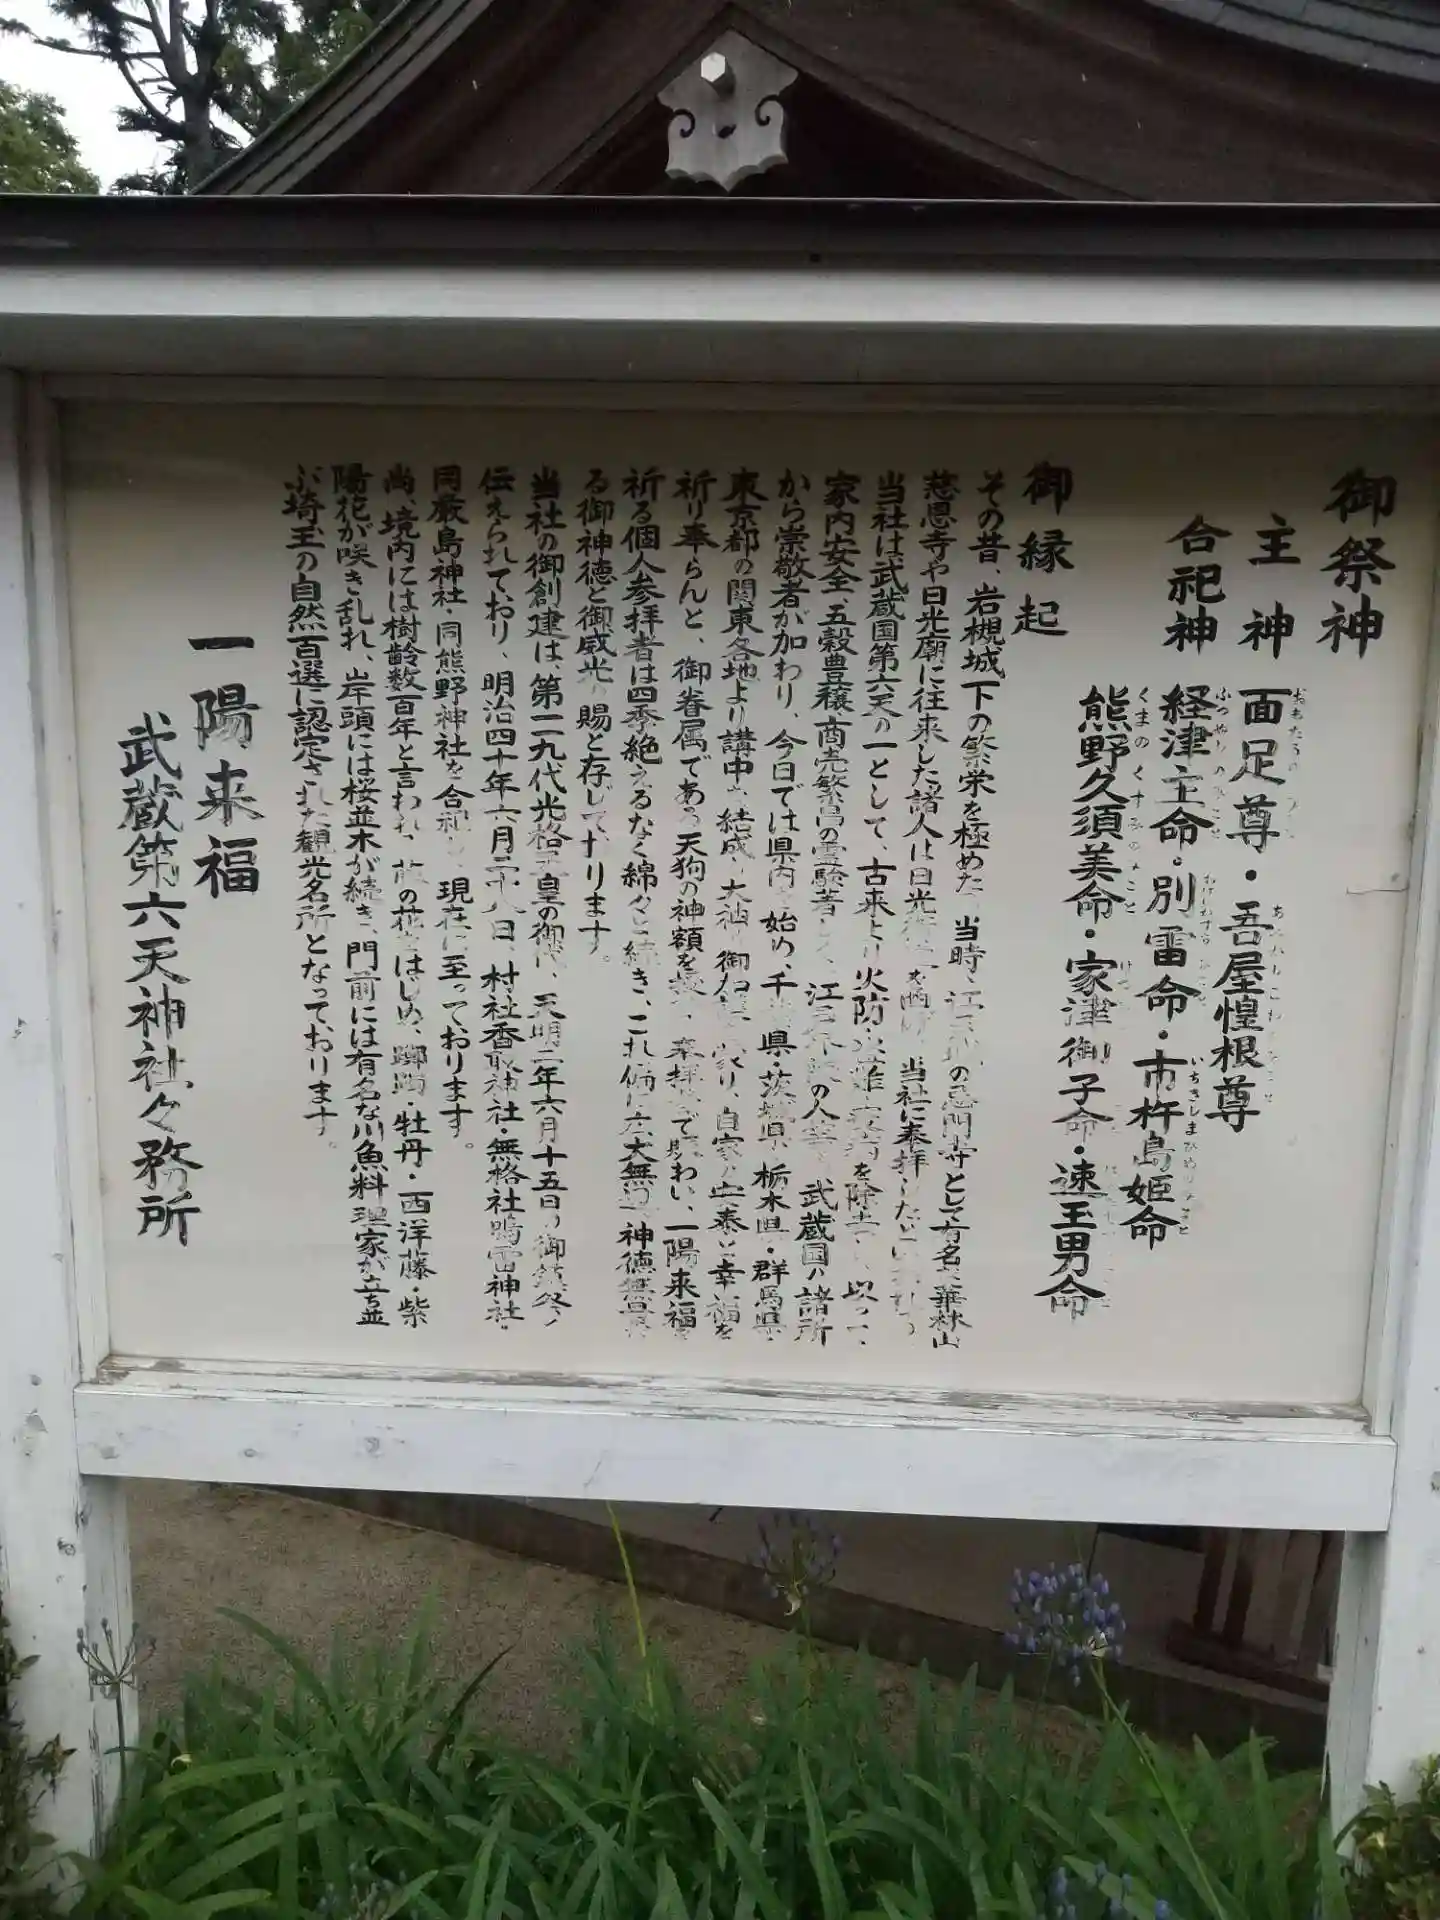 御祭神
主神 面足尊・吾屋惶根尊
合祀神 経津主命・別雷命・市杵島姫命
熊野久須美命・家津御子命・速玉男命
御縁起
その昔、岩槻城下の繁栄を極めた当時、江戸の忌門寺として有名な華林山
慈恩寺や日光廟に往来した諸人は日光を 当社に奉拝した
当社は、武蔵国第六天の一として、古来より火防・を除
家内安全、五穀豊穣、商売繁昌の霊験著 江 の人 武蔵国の諸所
から崇敬者が加わり、今日では県内を始め、千葉県・茨城県・栃木県・群馬県・
東京都の関東各地より講中を結成し大神の御 り、自家の安泰と幸福を
祈り奉らんと、御眷属である天狗の神額を 奉拝で賑わい、一陽来福を
祈る個人参拝者は四季絶えるなく綿々と続き、これ偏に広大無辺、神徳無量
る御神徳と御威光の賜と存じて十ります。
当社の御創建は、第一一九代光格天皇の御代、天明二年六月十五日の御鎮祭と
伝えられており、明治四十年六月二十八日、村社香取神社・無格社鳴雷神社・
同厳島神社・同熊野神社を合祀して現在に至っております。
尚、境内には樹齢数百年と言われ、藤の花をはじめ、躑躅・牡丹・西洋藤・紫
陽花が咲き乱れ、岸頭には桜並木が続き、門前には有名な川魚料理家が立ち並
ぶ埼玉の自然百選に認定された観光名所となっております。
一陽来福
武蔵第六天神社々務所